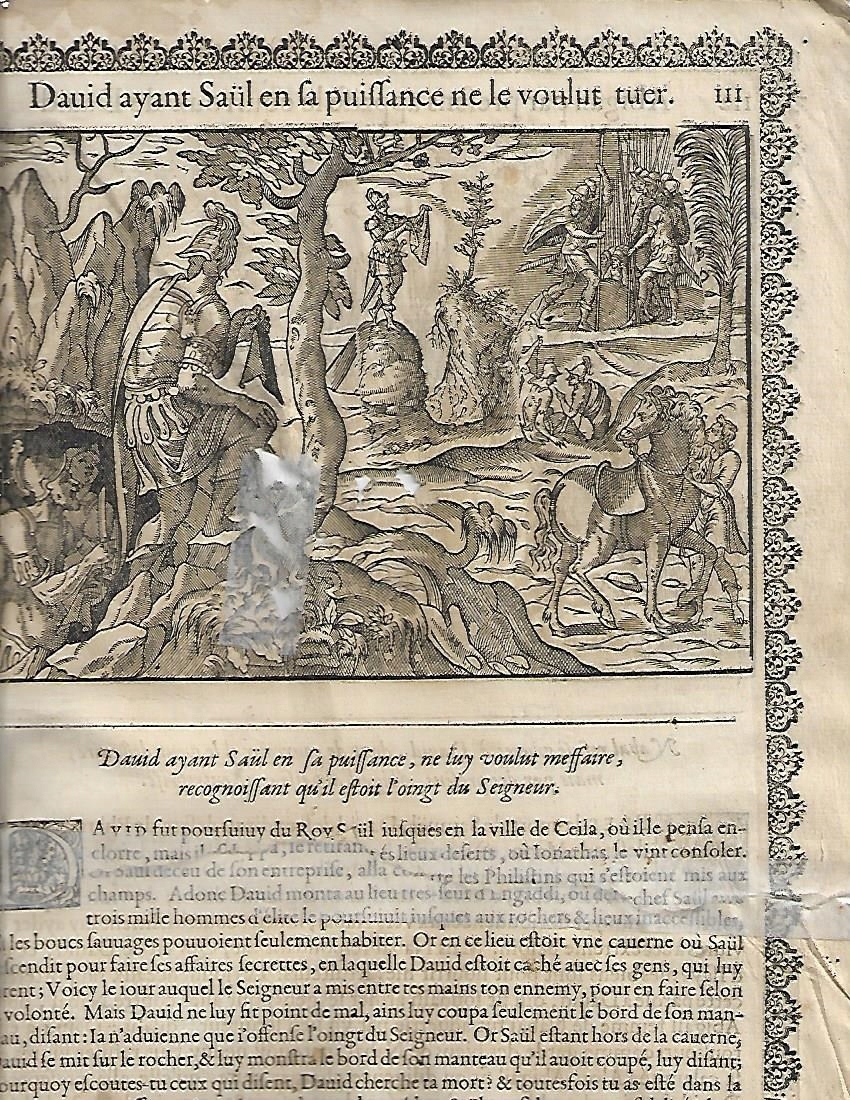 Dauid ayant Saül en ſa puiſſance ne le voulut tuer. III
Dauid ayant Saül en ſa puiſſance, ne luy voulut meffaire,
recognoiſſant qu'il eſtoit l'oingt du Seigneur.
AVID fut pourſuiuy du Roy Saül iuſques en la ville de Ceila, où il le penſa en-
clorre, mais il és lieux deſerts, où Ionathas le vint conſoler.
Or Saul deceu de ſon entrepriſe, alla les Philiſtins qui s'eſtoient mis aux
champs. Adonc Dauid monta au lieu tres-ſeur d'Engaddi, où Saül
trois mille hommes d'élite le pourſuiuit iuſques aux rochers & lieux inacceſſibles,
les boucs ſauuages pouuoient ſeulement habiter. Or en ce lieu eſtoit vne cauerne où Saül
ſcendit pour faire ſes affaires ſecrettes, en laquelle Dauid eſtoit caché auec ſes gens, qui luy
rent; Voicy le iour auquel le Seigneur a mis entre tes mains ton ennemy, pour en faire ſelon
volonté. Mais Dauid ne luy fit point de mal, ains luy coupa ſeulement le bord de ſon man-
au, diſant: Ia n'aduienne que i'offenſe l'oingt du Seigneur. Or Saül eſtant hors de la cauerne,
auid ſe mit ſur le rocher, & luy monſtra le bord de ſon manteau qu'il auoit coupé, luy diſant;
ourquoy eſcoutes-tu ceux qui diſent, Dauid cherche ta mort? & toutesfois tu as eſté dans la